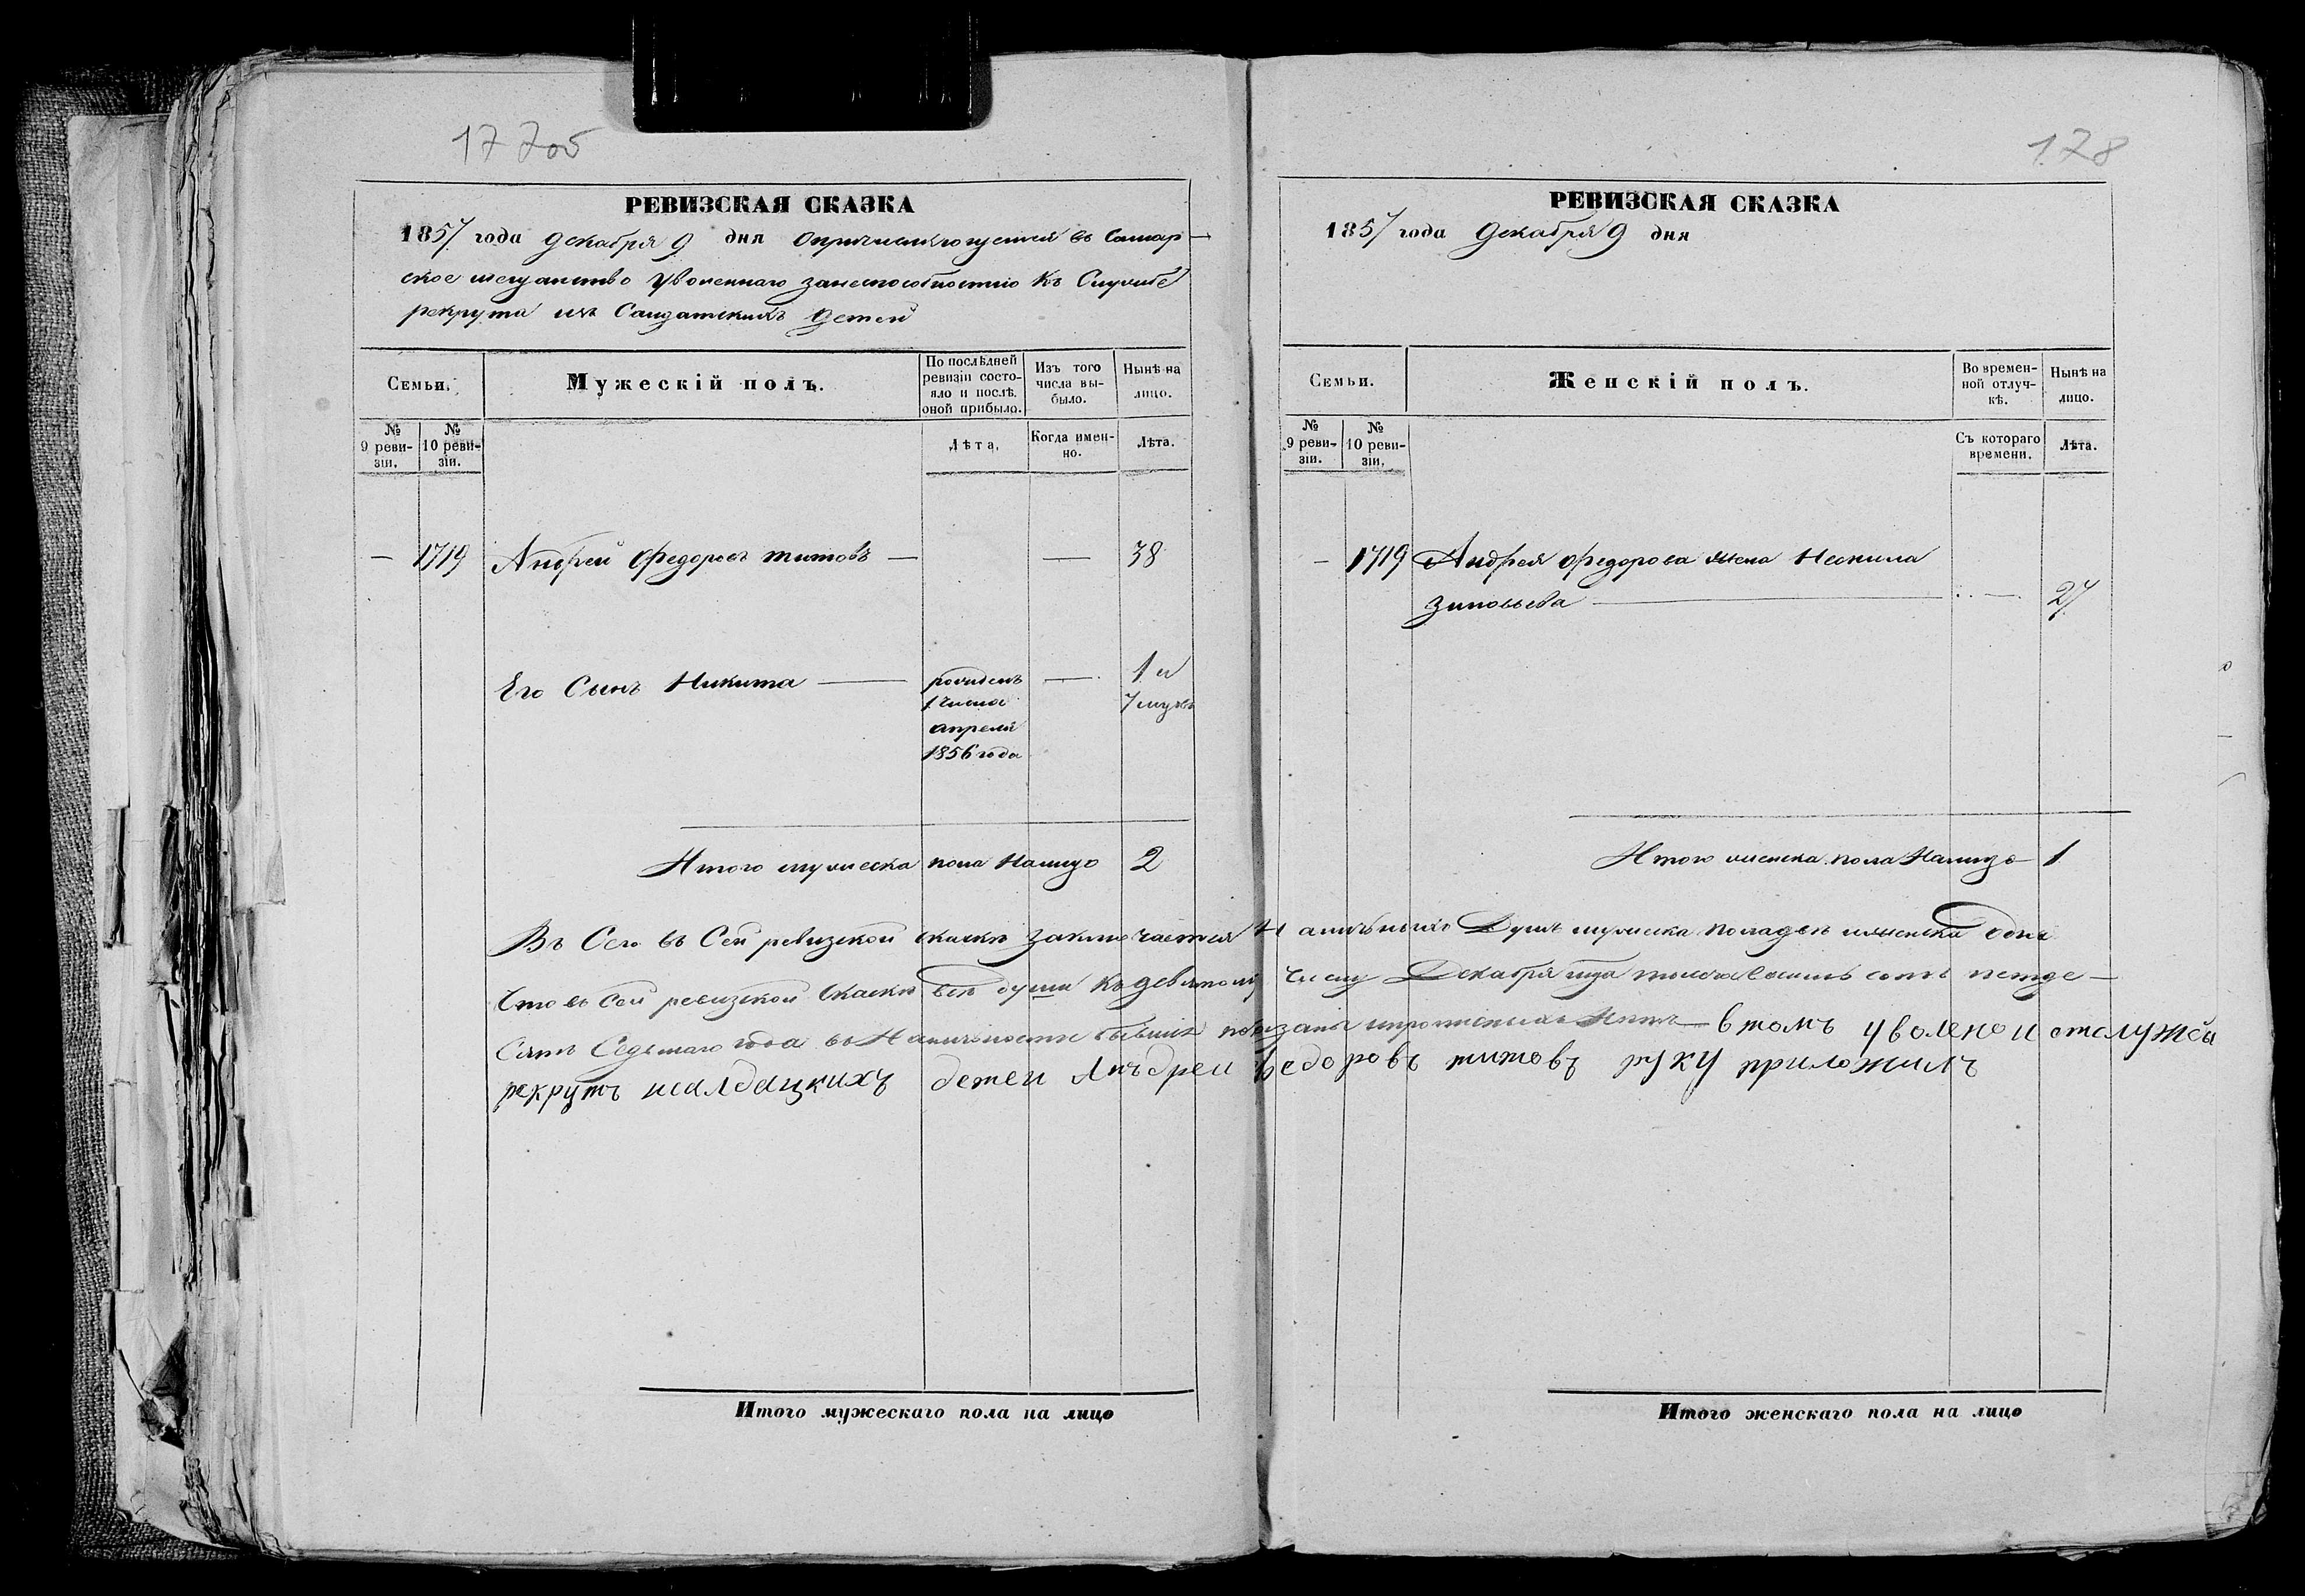 177об
РЕВИЗСКАЯ СКАЗКА
1857 года декабря 9 дня опричисляющемся въ Самар-
ское мещанство Уволеннаго занеспособностию къ Службе
рекрута изъ Салдатскихъ детей
Семьи.
Мужескій полъ.
По послѣдней ревизіи состо-
яло и послѣ оной прибыло.
Изъ того числа вы-
было.
Нынѣ на лицо.
№ 9 реви-
зіи.
№ 10 реви-
зіи.
Лѣта.
Когда имен-
но.
Лѣта.
— 1719 Андрей Федоровъ титовъ — — 38
Его Сынъ Никита — рожденъ — 1 и
1 числа 7 мцъ
апреля
1856 года
Итого мужеска пола Налицо 2
Итого мужескаго пола на лицо
178
РЕВИЗСКАЯ СКАЗКА
1857 года декабря 9 дня
Семьи.
Женскій полъ.
Во времен-
ной отлуч-
кѣ.
Нынѣ на лицо.
№ 9 реви-
зіи.
№ 10 реви-
зіи.
Съ котораго времени.
Лѣта.
— 1719 Андрея Федорова жена Неонила
Зиновьева — — 27
Итого женска пола Налицо 1
Въ Сего въ Сей ревизской скаски заключается Наличныхъ Душъ мужеска пола две и женска одна
Что въ сей ревизской Скаски все души къ девятому числу Декабря тысяча восемь сотъ петде-
сятъ Седьмаго года въ Наличности бывшие показаны и прописныхъ нетъ — втомъ уволеной отслужбы
рекрутъ исалдацкихъ детеи Анъдреи Федоровъ титовъ руку приложилъ
Итого женскаго пола на лицо